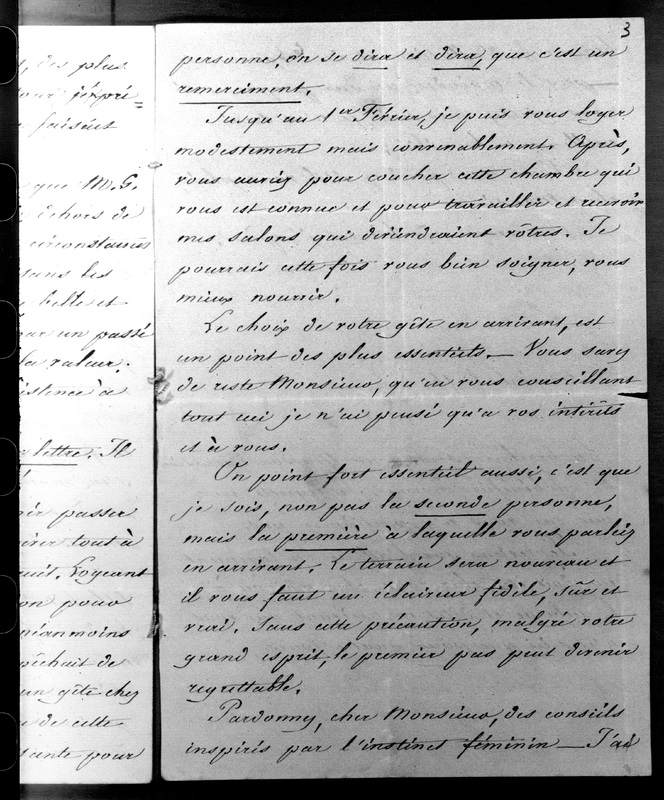 3
t, des plus
pour
faisait
que M. G.
dehors de
circonstances
sans les
belle et
par un passé
la valeur.
existence à
lettre. Il
passer
tout à
Logeant
on pour
néanmoins
pêchait de
un gîte chez
de cette
pour
personne, on se dira et dira, que c'est un
remerciment.
Jusqu'au 1er Février, je puis vous loger
modestement mais convenablement. Après,
vous auriez pour coucher cette chambre qui
vous est connue et pour travailler et recevoir
mes salons qui deviendraient vôtres. Je
pourrais cette fois vous bien soigner, vous
mieux nourrir.
Le choix de votre gîte en arrivant, est
un point des plus essentiels. — Vous savez
de reste Monsieur, qu'en vous conseillant
tout ceci je n'ai pensé qu'a vos intérêts
et à vous.
Un point fort essentiel aussi, c'est que
je sois, non pas la seconde personne,
mais la première à laquelle vous parliez
en arrivant. Le terrain sera nouveau et
il vous faut un éclaireur fidèle, sûr et
vrai. Sans cette précaution, malgré votre
grand esprit, le premier pas peut devenir
regrettable.
Pardonnez, cher Monsieur, des conseils
inspirés par l'instinct féminin — J'ai